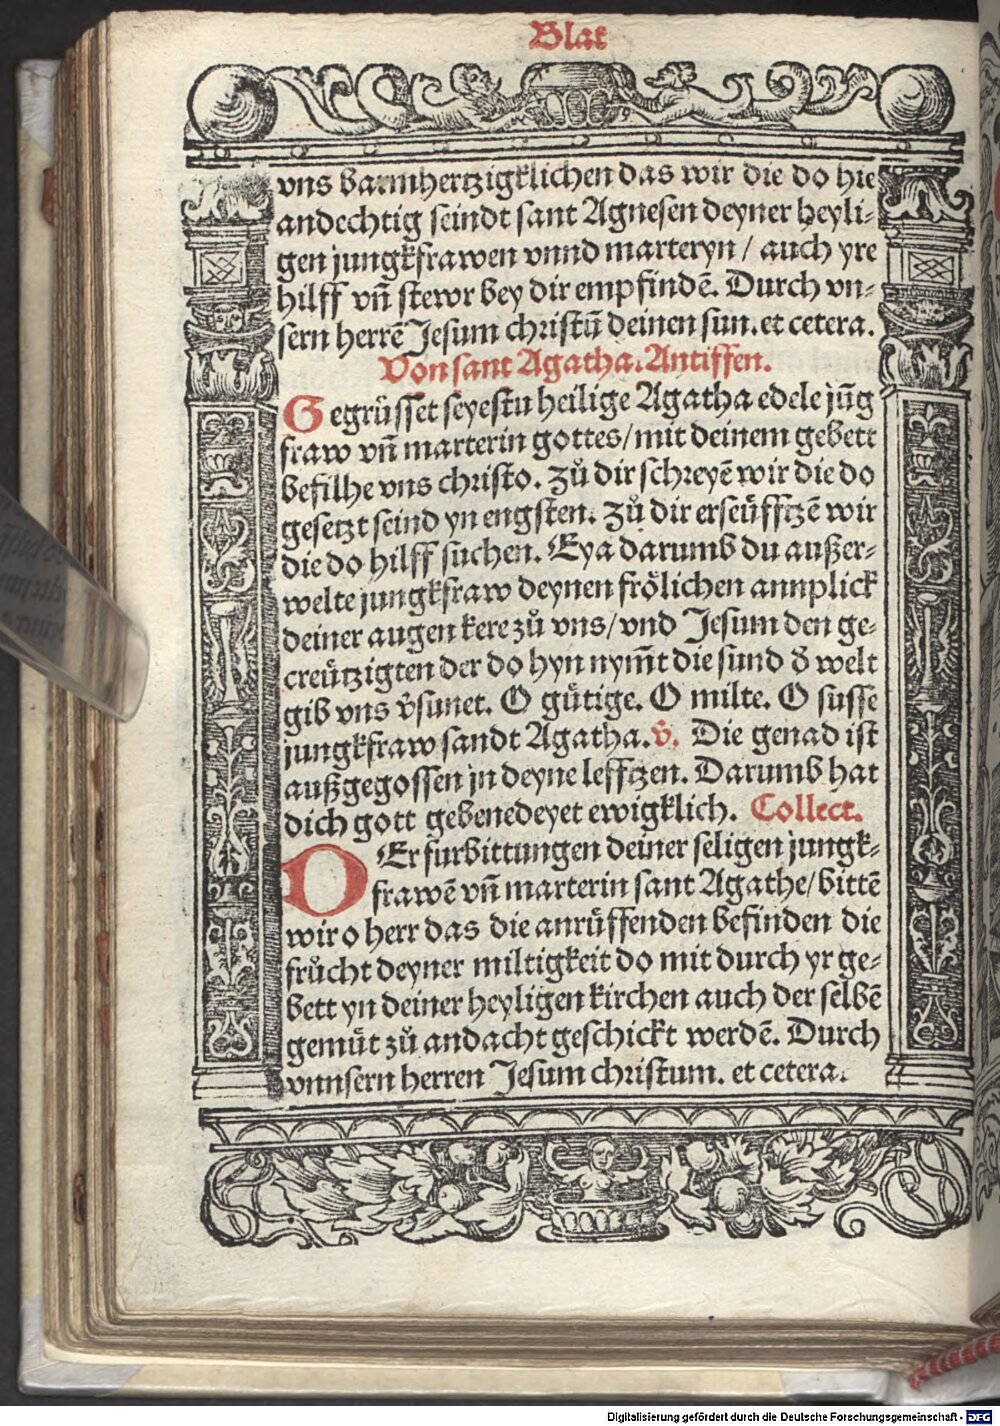 Blat
vns barmhertzigklichen das wir die do hie
andechtig seindt sant Agnesen deyner heyli⸗
gen jungkfrawen vnnd marteryn / auch yre
hilff vn̄ stewr bey dir empfindē. Durch vn⸗
sern herrē Jesum christū deinen sun. et cetera.
Von sant Agatha. Antiffen.
Gegruͤsset seyestu heilige Agatha edele jūg
fraw vn̄ marterin gottes / mit deinem gebett
befilhe vns christo. Zuͦ dir schreyē wir die do
gesetzt seind yn engsten. Zuͦ dir erseuͤfftzē wir
die do hilff suchen. Eya darumb du außer⸗
welte jungkfraw deynen froͤlichen annplick
deiner augen kere zuͦ vns / vnd Jesum den ge⸗
creuͤtzigten der do hyn nym̄t die sund d̕ welt
gib vns v̕sunet. O guͤtige. O milte. O susse
jungkfraw sandt Agatha. v̕. Die genad ist
außgegossen jn deyne lefftzen. Darumb hat
dich gott gebenedeyet ewigklich. Collect.
OEr furbittungen deiner seligen jungk⸗
frawē vn̄ marterin sant Agathe / bittē
wir o herr das die anruͤffenden befinden die
fruͦcht deyner miltigkeit do mit durch yr ge⸗
bett yn deiner heyligen kirchen auch der selbē
gemuͤt zuͦ andacht geschickt werdē. Durch
vnnsern herren Jesum christum. et cetera.
Digitalisierung gefördert durch die Deutsche Forschungsgemeinschaft - DFG